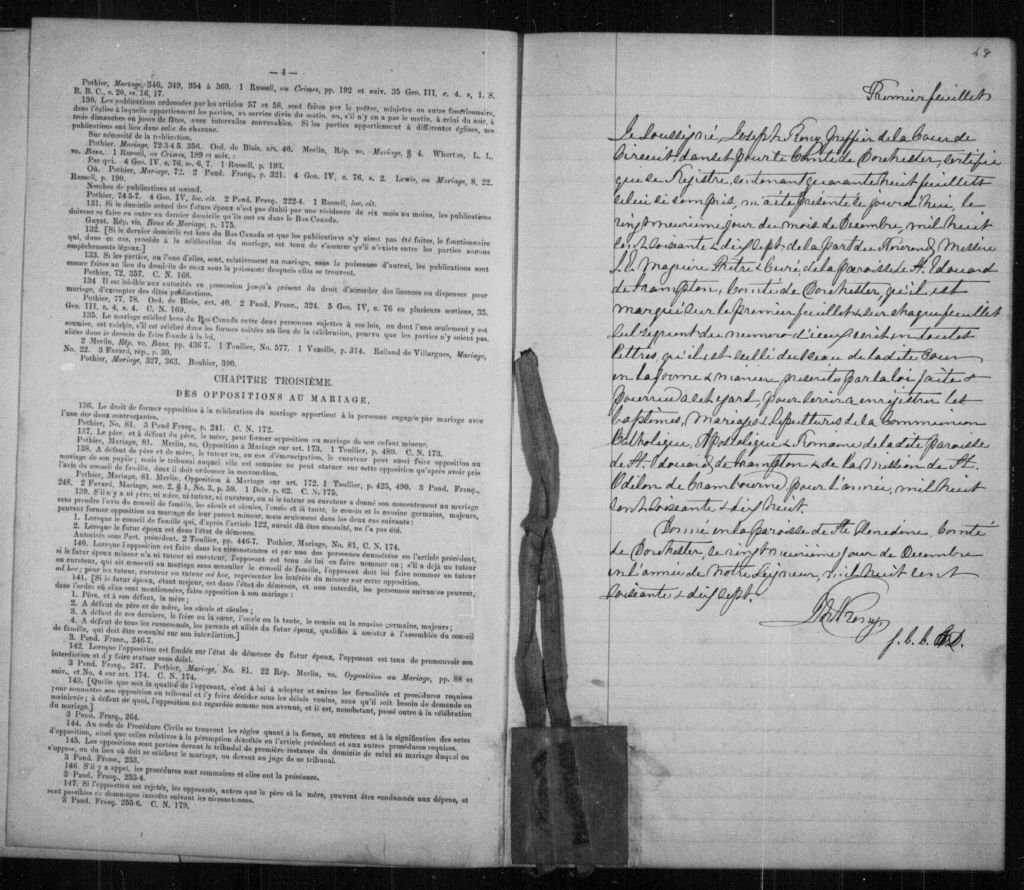 — 4 —
Pothier, Mariage, 346, 349, 954 à 360. 1 Russell, on Crimes, pp. 192 et suiv. 35 Geo. III, c. 4, s. 1, 8.
R. B. C., c. 20, ss. 16, 17.
130. Les publications ordonnées par les articles 57 et 58, sont faites par le prêtre, ministre ou autre fonctionnaire,
dans l'église à laquelle appartiennent les parties, au service divin du matin, ou, s'il n'y en a pas le matin, à celui du soir, à
trois dimanches ou jours de fêtes, avec intervalles convenables. Si les parties appartiennent à différentes églises, ces
publications ont lieu dans celle de chacune.
Sur nécessité de la publication.
Pothier, Mariage, 72-3-4-5, 356. Ord. de Blois, art. 40. Merlin, Rép. vo. Mariage, § 4. Wharton, L. L.
vo. Bans. 1 Russell, on Crimes, 189 et suiv. :
Par qui. 4 Geo. IV, c. 76, ss. 6, 7. 1 Russell, p. 193.
Où. Pothier, Mariage, 72. 2 Pand. Franç., p. 321. 4 Geo. IV, c. 76, s. 2. Lewis, on Mariage, 8, 22.
Russell, p. 190.
Nombre de publications et quand.
Pothier, 74-5-7. 4 Geo. IV, loc. cit. 2 Pand. Franç., 222-4. 1 Russell, loc. cit.
131. Si le domicile actuel des futurs époux n'est pas établi par une résidence de six mois au moins, les publications
doivent se faire en outre au dernier domicile qu'ils ont eu dans le Bas Canada.
Guyot, Rép. vis. Bans de Mariage, p. 175.
132. [Si le dernier domicile est hors du Bas Canada et que les publications n'y aient pas été faites, le fonctionnaire
qui, dans ce cas, procède à la célébration du mariage, est tenu de s'assurer qu'il n'existe entre les parties aucuns
empêchements légaux.]
133. Si les parties, ou l'une d'elles, sont, relativement au mariage, sous la puissance d'autrui, les publications sont
encore faites au lieu du domicile de ceux sous la puissance desquels elles se trouvent.
Pothier, 72, 357. C. N. 168.
134 Il est loisible aux autorités en possession jusqu'à présent du droit d'accorder des licences ou dispenses pour
mariage, d'exempter des dites publications.
Pothier, 77, 78. Ord. de Blois, art. 40. 2 Pand. Franç., 324. 5 Geo. IV, c. 76 en plusieurs sections, 35.
Geo. III, c. 4, s. 4. C. N. 169.
135. Le mariage célébré hors du Bas Canada entre deux personnes sujettes à ses lois, ou dont l'une seulement y est
soumise, est valable, s'il est célébré dans les formes usitées au lieu de la célébration, pourvu que les parties n'y soient pas
allées dans le dessein de faire fraude à la loi.
2 Merlin, Rép. vo. Bans, pp. 436-7. 1 Toullier, No. 577. 1 Vazeille, p. 314. Rolland de Villargues, Mariage,
No. 22. 3 Favard, rép., p. 30.
Pothier, Mariage, 327, 363. Bouhier, 390.
CHAPITRE TROISIÈME.
DES OPPOSITIONS AU MARIAGE.
136. Le droit de former opposition à la célébration du mariage appartient à la personne engagée par mariage avec
l'une des deux contractantes.
Pothier, No. 81. 3 Pand Franç., p. 241. C. N. 172.
137. Le père, et à défaut du père, la mère, peut former opposition au mariage de son enfant mineur.
Pothier, Mariage, 81. Merlin, vo. Opposition à Mariage sur art. 173. 1 Toullier, p. 489. C. N. 173.
138. A défaut de père et de mère, le tuteur ou, au cas d'émancipation, le curateur peut aussi faire opposition au
mariage de son pupile ; mais le tribunal auquel elle est soumise ne peut statuer sur cette opposition qu'après avoir pris
l'avis du conseil de famille, dont il doit ordonner la convocation.
Pothier, Mariage, 81. Merlin, Opposition à Mariage sur art. 172. 1 Toullier, p. 425, 490. 3 Pand. Franç.,
248. 2 Favard, Mariage, sec. 2. § 1, No. 3, p. 59. 1 Delv. p. 62. C. N. 175.
139. S'il n'y a ni père, ni mère, ni tuteur, ni curateur, ou si le tuteur ou curateur a donné son consentement au mariage
sans prendre l'avis du conseil de famille, les aïeuls et aïeules, l'oncle et la tante, le cousin et la cousine germains, majeurs,
peuvent former opposition au mariage de leur parent mineur, mais seulement dans les deux cas suivants :
1. Lorsque le conseil de famille qui, d'après l'article 122, aurait dû être consulté, ne l'a pas été.
2. Lorsque le futur époux est dans l'état de démence.
Autorités sous Part. précédent. 2 Toullier, pp. 446-7. Pothier, Mariage, No. 81, C. N. 174.
140. Lorsque l'opposition est faite dans les circonstances et par une des personnes énumérées en l'article précédent,
si le futur époux mineur n'a ni tuteur ni curateur, l'opposant est tenu de lui en faire nommer un ; s'il a déjà un tuteur
ou curateur, qui ait consenti au mariage sans consulter le conseil de famille, l'opposant doit lui faire nommer un tuteur
ad hoc ; pour les tuteur, curateur ou tuteur ad hoc, représenter les intérêts du mineur sur cette opposition.
141. [Si le futur époux, étant majeur, est dans l'état de démence, et non interdit, les personnes suivantes peuvent,
dans l'ordre où elles sont mentionnées, faire opposition à son mariage :
1. Père, et à son défaut, la mère ;
2. A défaut de père et de mère, les aïeuls et aïeules ;
3. A défaut de ces derniers, le frère ou la sœur, l'oncle ou la tante, le cousin ou la cousine germains, majeurs ;
4. A défaut de tous les susnommés, les parents et alliés du futur époux, qualifiés à assister à l'assemblée du conseil
de famille, qui doit être consulté sur son interdiction.]
3. Pand. Franç., 246-7.
142. Lorsque l'opposition est fondée sur l'état de démence du futur époux, l'opposant est tenu de promouvoir son
interdiction et d'y faire statuer sans délai.
3 Pand. Franç., 247. Pothier, Mariage, No. 81. 22 Rép. Merlin, vo. Opposition au Mariage, pp. 88 et
suiv., et No. 4 sur art. 174. C. N. 174.
143. [Quelle que soit la qualité de l'opposant, c'est à lui à adopter et suivre les formalités et procédures requises
pour soumettre son opposition au tribunal et l'y faire décider sous les délais voulus, sans qu'il soit besoin de demande en
mainlevée ; à défaut de quoi, l'opposition est regardée comme non avenue, et il est, nonobstant, passé outre à la célébration
du mariage.]
3 Pand. Franç., 264.
144. Au code de Procédure Civile se trouvent les règles quant à la forme, au contenu et à la signification des actes
d'opposition, ainsi que celles relatives à la péremption décrétée en l'article précédent et aux autres procédures requises.
145. Les oppositions sont portées devant le tribunal de première instance du domicile de celui au mariage duquel on
s'oppose, ou du lieu où doit se célébrer le mariage, ou devant un juge de ce tribunal.
3 Pand. Franc., 253.
146. S'il y a appel, les procédures sont sommaires et elles ont la préséance.
3 Pand. Franç., 253-4.
147. Si l'opposition est rejetée, les opposants, autres que le père et la mère, peuvent être condamnés aux dépens, et
sont passibles de dommages intérêts suivant les circonstances.
3 Pand. Francç. 255-6. C. N. 179.
48
Premier feuillet
Je soussigné, Joseph Remy Greffier de la Cour de
Circuit, dans et pour le Comté de Dorchester, certifie
que ce Registre, contenant quarante huit feuillets
celui ci compris, m'a été présenté ce jourd'hui, le
vingt neuvième jour du mois de Decembre, mil huit
cent soixante & dix sept, de la part du Révérend Messire
J. E. Maguire Prêtre & Curé de la paroisse de St. Edouard
de Frampton, Comté de Dorchester, qu'il est
marqué sur le premier feuillet & sur chaque feuillet
subséquent du numéro d'iceux écrit en toutes
lettres, qu'il est scellé du sceau de la dite Cour
en la forme & manière prescrites par la loi faite &
pourvue à cet égard pour servir à enregistrer les
baptêmes, Mariages & Sépultures de la Communion
Catholique, Apostolique & Romaine de la dite paroisse
de St. Edouard de Frampton & de la Mission de St.
Odilon de Cranbourne, pour l'année, mil huit
cent soixante & dix huit.
Donné en la paroisse de Ste Henedine, Comté
de Dorchester, ce vingt neuvième jour de Decembre
en l'année de Notre Seigneur, mil huit cent
soixante & dix sept.